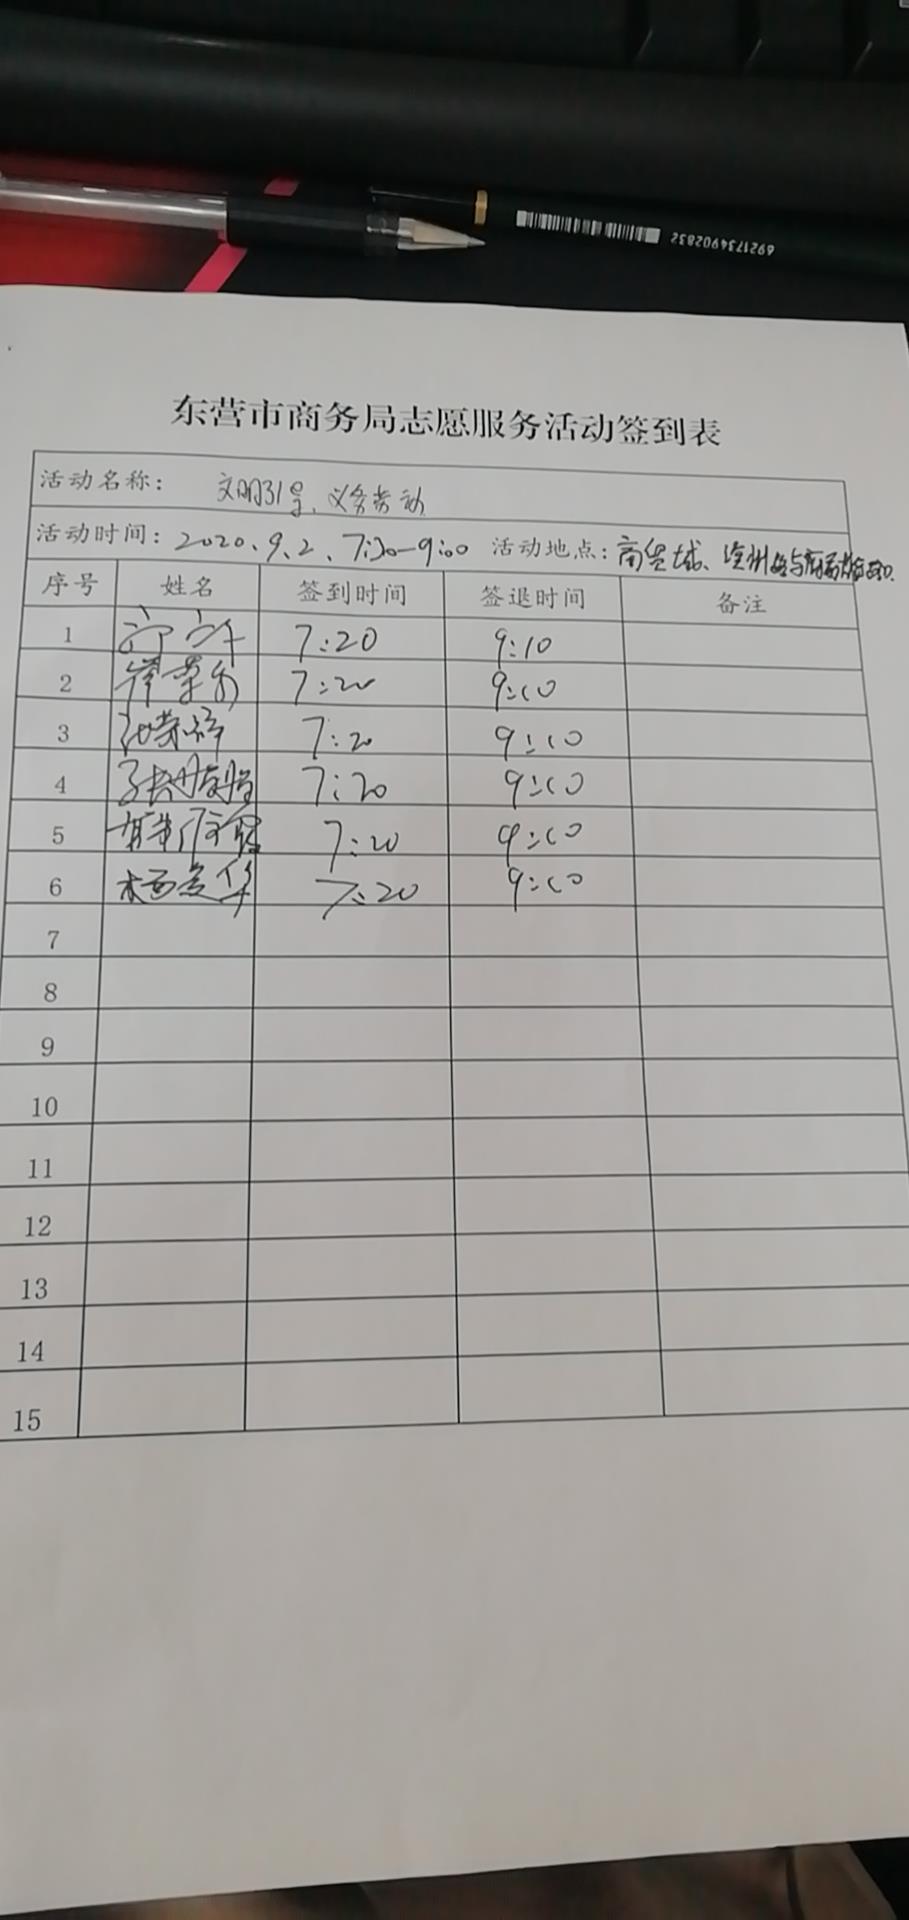 6921734902832
东营市商务局志愿服务活动签到表
活动名称： 文明31号、义务劳动
活动时间：2020.9.2、7:30—9:00 活动地点：商贸城、
序号 姓名 签到时间 签退时间 备注
1 7:20 9:10
2 7:20 9:10
3 7:20 9:10
4 7:20 9:10
5 7:20 9:10
6 7:20 9:10
7
8
9
10
11
12
13
14
15